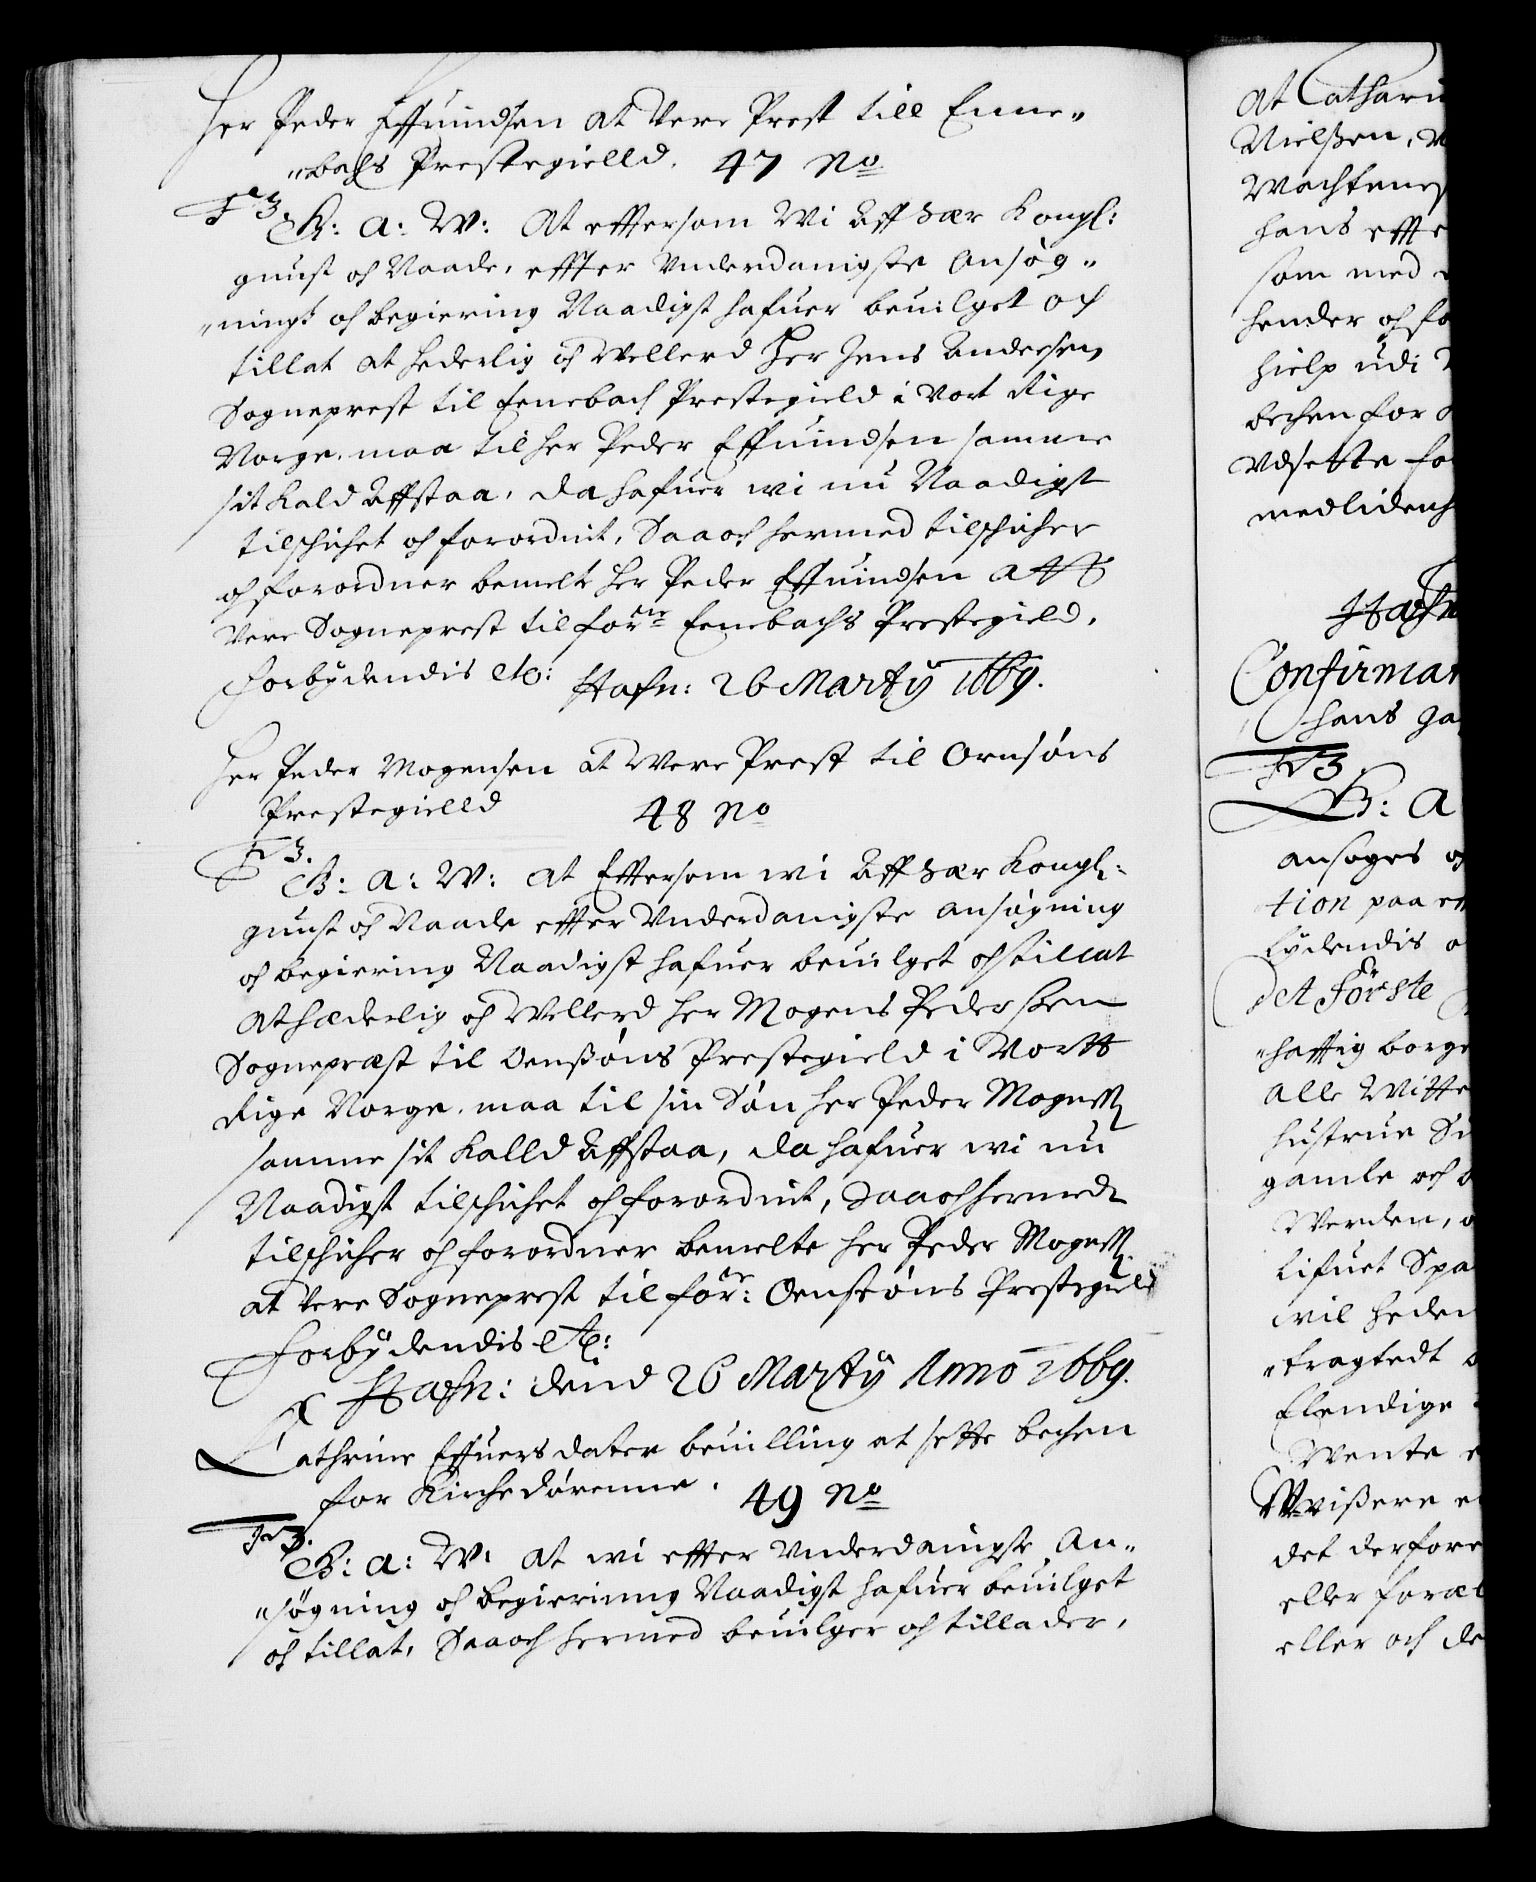 Her Peder Effuindsen at Vere Prest till Enne„
„bachs Prestegielld. 47 No
F 3.
G: A: W: At effersom Wi Aff Sær Kongl:
gunst och Naade, effter Vnderdanigste Ansøg„
„ningk och begiering Naadigst hafuer beuilget och
tillat at Hederlig och Wellerd Her Jens Andersen
Sogneprest til Eenebach Prestegield i Vort Rige
Norge, maa til her Peder Effuindsen samme
sit Kald Affstaa, da hafuer wi nu Naadigst
tilschichet och forordnit, Saa och hermed tilschicher
och forordner bemelte her Peder Effuindsen att
Vere Sogneprest til for:ne Eenebachs Prestegield,
Forbydendis etc: Hafn: 26 Martij 1669.
Her Peder Mogensen at Were Prest til Ornsøns
Prestegielld 48 No
F 3.
G: A: W: At Effersom wi Aff Sær Kongl:
gunst och Naade effter Vnderdanigste ansøgning
och begiering Naadigst hafuer beuilget och tillat
at hæderlig och Wellerd her Mogens Pedersen
Sognepræst til Oenßøns Prestegield i Vortt
Rige Norge, maa til sin Søn her Peder Mogenss:
samme sit Kalld Affstaa, da hafuer wi nu
Naadigst tilschichet och forordnit, Saa och hermed
tilschicher och forordner bemelte her Peder Mogenss:
at Vere Sogneprest til for: Oensøns Prestegield
Forbydendis etc:
Hafn: dend 26 Martij Anno 1669.
Cathrine Effuersdater beuilling at sette bechen
for Kirchedørenne. 49 No
F 3.
G: A: W: At wi effter Vnderdanigste An„
„søgning och begieriung Naadigst hafuer beuilget
och tillat, Saa och hermed beuilger och tillader,
at Cathari
Nielßen, 
Wachtmes
hans effte
som med
hender och fo
hielp udi
bechen for
Vdsette for
medlidenh
Hafn
Confirmat
hans ga
F 3
G: A
ansøges och
tion paa et
lydendis
det Förste
„hafftig borge
Alle Witte
hustrue
gamle och
Werden,
lifuet Spa
wil heden
„fragtedt
Elendige
Wente
Wvißere
det derfore
eller foræl
eller och de